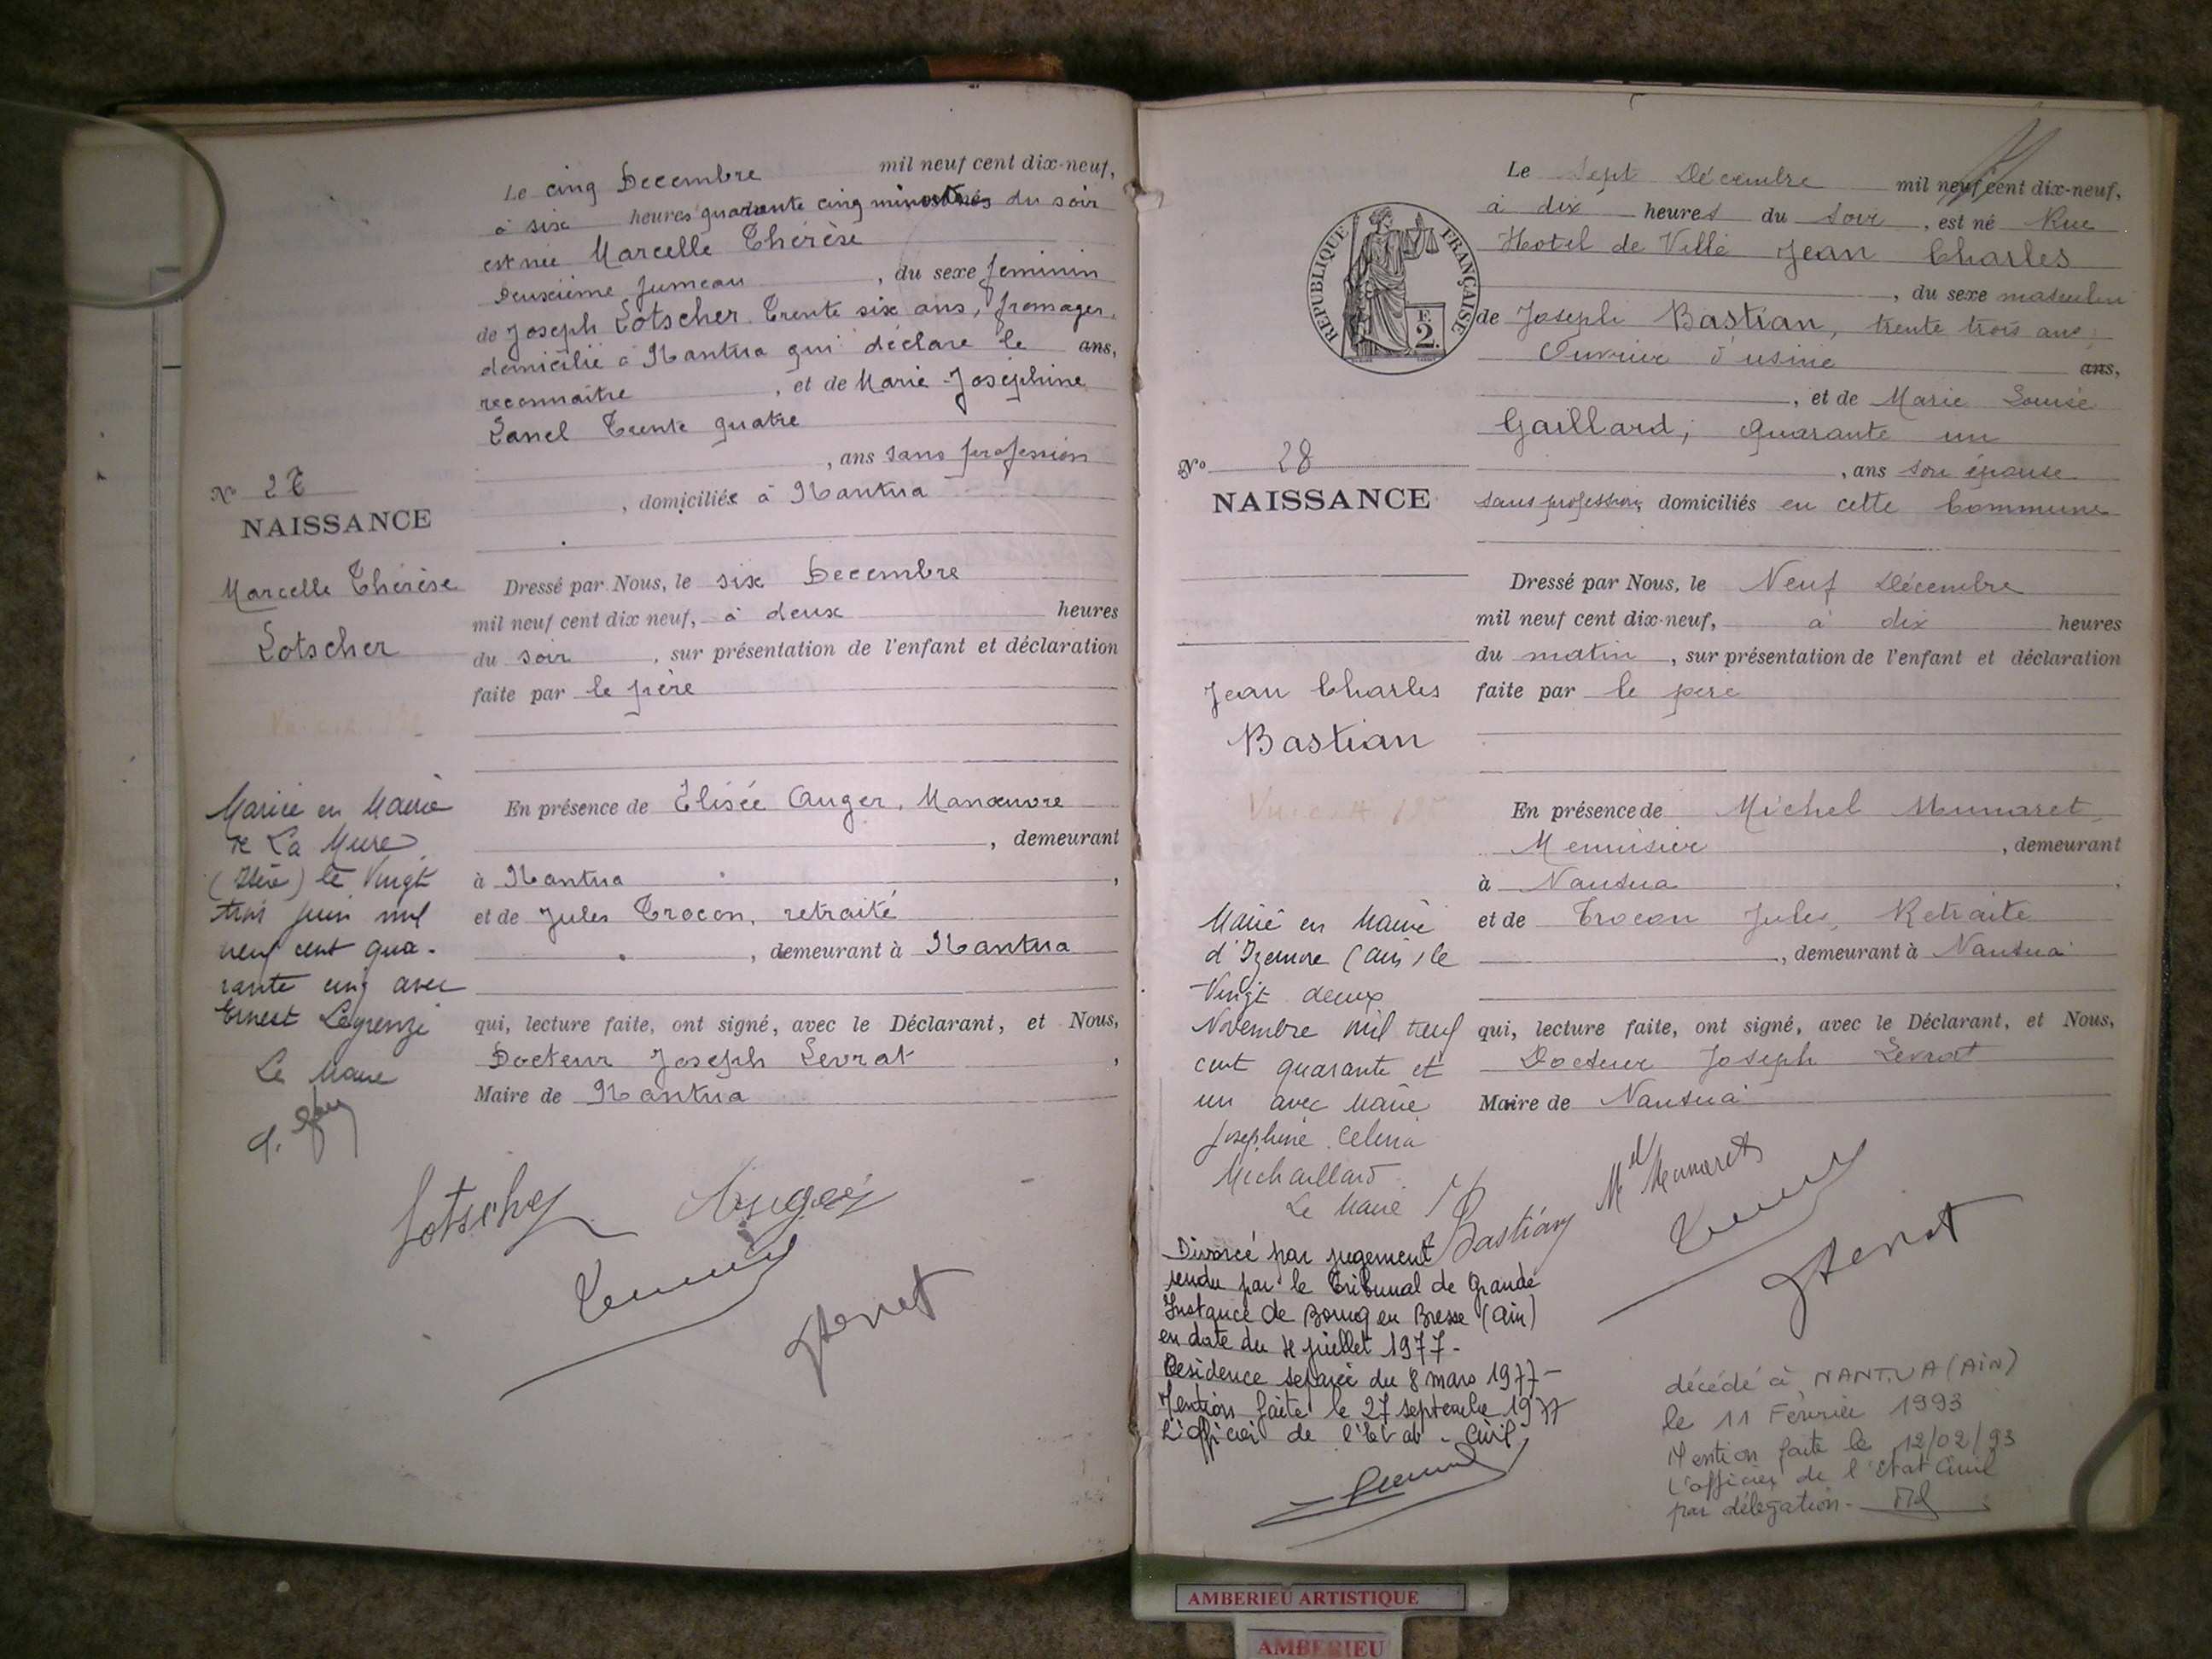 Le cinq Décembre mil neuf cent dix-neuf,
à six heures quarante cinq minutes du soir
est née Marcelle Thérèse
Deuxième Jumeau , du sexe féminin
de Joseph Lotscher Trente six ans, fromager,
domicilié à Nantua qui déclare le ans,
reconnaitre , et de Marie-Joséphine
Lanel Trente quatre
, ans sans profession
, domiciliée à Nantua
No 27
NAISSANCE
Marcelle Thérèse
Lotscher
Dressé par Nous, le six Décembre
mil neuf cent dix neuf, à deux heures
du soir , sur présentation de l'enfant et déclaration
faite par le père
En présence de Elisée Auger, Manœuvre
, demeurant
à Nantua ,
et de Jules Trocon, retraité
, demeurant à Nantua
qui, lecture faite, ont signé, avec le Déclarant, et Nous,
Docteur Joseph Levrat ,
Maire de Nantua
Mariée en Mairie
de La Mure
(Isère) le Vingt
trois juin mil
neuf cent qua-
rante cinq avec
Ernest Legrenzi
Le Maire
Lotscher Auger
Le Sept Décembre mil neuf cent dix-neuf,
à dix heures du soir , est né Rue
Hotel de Ville Jean Charles
, du sexe masculin
de Joseph Bastian, trente trois ans,
Ouvrier d'usine ans,
, et de Marie Louise
Gaillard, quarante un
, ans son épouse
sans profession, domiciliés en cette Commune
RÉPUBLIQUE FRANÇAISE
F.
2.
No 28
NAISSANCE
Jean Charles
Bastian
Dressé par Nous, le Neuf Décembre
mil neuf cent dix-neuf, à dix heures
du matin , sur présentation de l'enfant et déclaration
faite par le père
En présence de Michel Munaret,
Menuisier , demeurant
à Nantua ,
et de Trocon Jules, Retraité
, demeurant à Nantua
qui, lecture faite, ont signé, avec le Déclarant, et Nous,
Docteur Joseph Levrat
Maire de Nantua
Marié en Mairie
d'Izernore (Ain) le
Vingt deux
Novembre mil neuf
cent quarante et
un avec Marie
Joséphine Celina
Michaillard
Le Maire
Bastian Munaret
Divorcé par jugement
rendu par le Tribunal de Grande
Instance de Bourg en Bresse (Ain)
en date du 4 juillet 1977-
Résidence séparée du 8 mars 1977-
Mention faite le 27 septembre 1977
L'officier de l'état-civil
décédé à NANTUA (AIN)
le 11 Février 1993
Mention faite le 12/02/93
L'officier de l'état Civil
par délégation-
AMBERIEU ARTISTIQUE
AMBERIEU